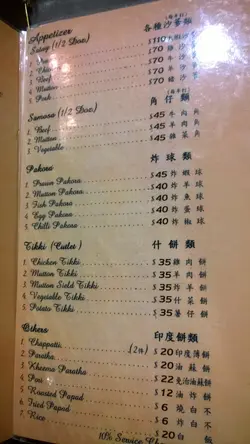 Appetizer
各種沙爹類
Satay (1/2 Doz.)
$110
$70
$70 牛沙
$70 羊沙
$70 豬沙
2.
3. Beef
4. Mutton
5. Pork
角仔類
Samosa (1/2 Doz.)
1. Beef $45 牛肉角
2. Mutton $45 羊肉角
3. Vegetable $45 雜菜角
Pakora 炸球類
1. Prawn Pakora $45 炸蝦球
2. Mutton Pakora $40 炸羊球
3. Fish Pakora $40 炸魚球
4. Egg Pakora $40 炸蛋球
5. Chilli Pakora $40 炸椒球
Tikki (Cutlet) 什餅類
1. Chicken Tikki $35 雞肉餅
2. Mutton Tikki $35 羊肉餅
3. Mutton Tikki $35 炸羊餅
4. Vegetable Tikki $35 什菜餅
5. Potato Tikki $35 薯仔餅
Others 印度餅類
1. Chappatti (2件) $20 印度薄餅
2. Paratha $20 油蘇餅
3. Kheema Paratha $22 免治油蘇餅
4. Puri $12 油炸餅
5. Roasted Papad $6 燒白不
6. Fried Papad $6 炸白不
7. Rice $20 白飯
10% Service